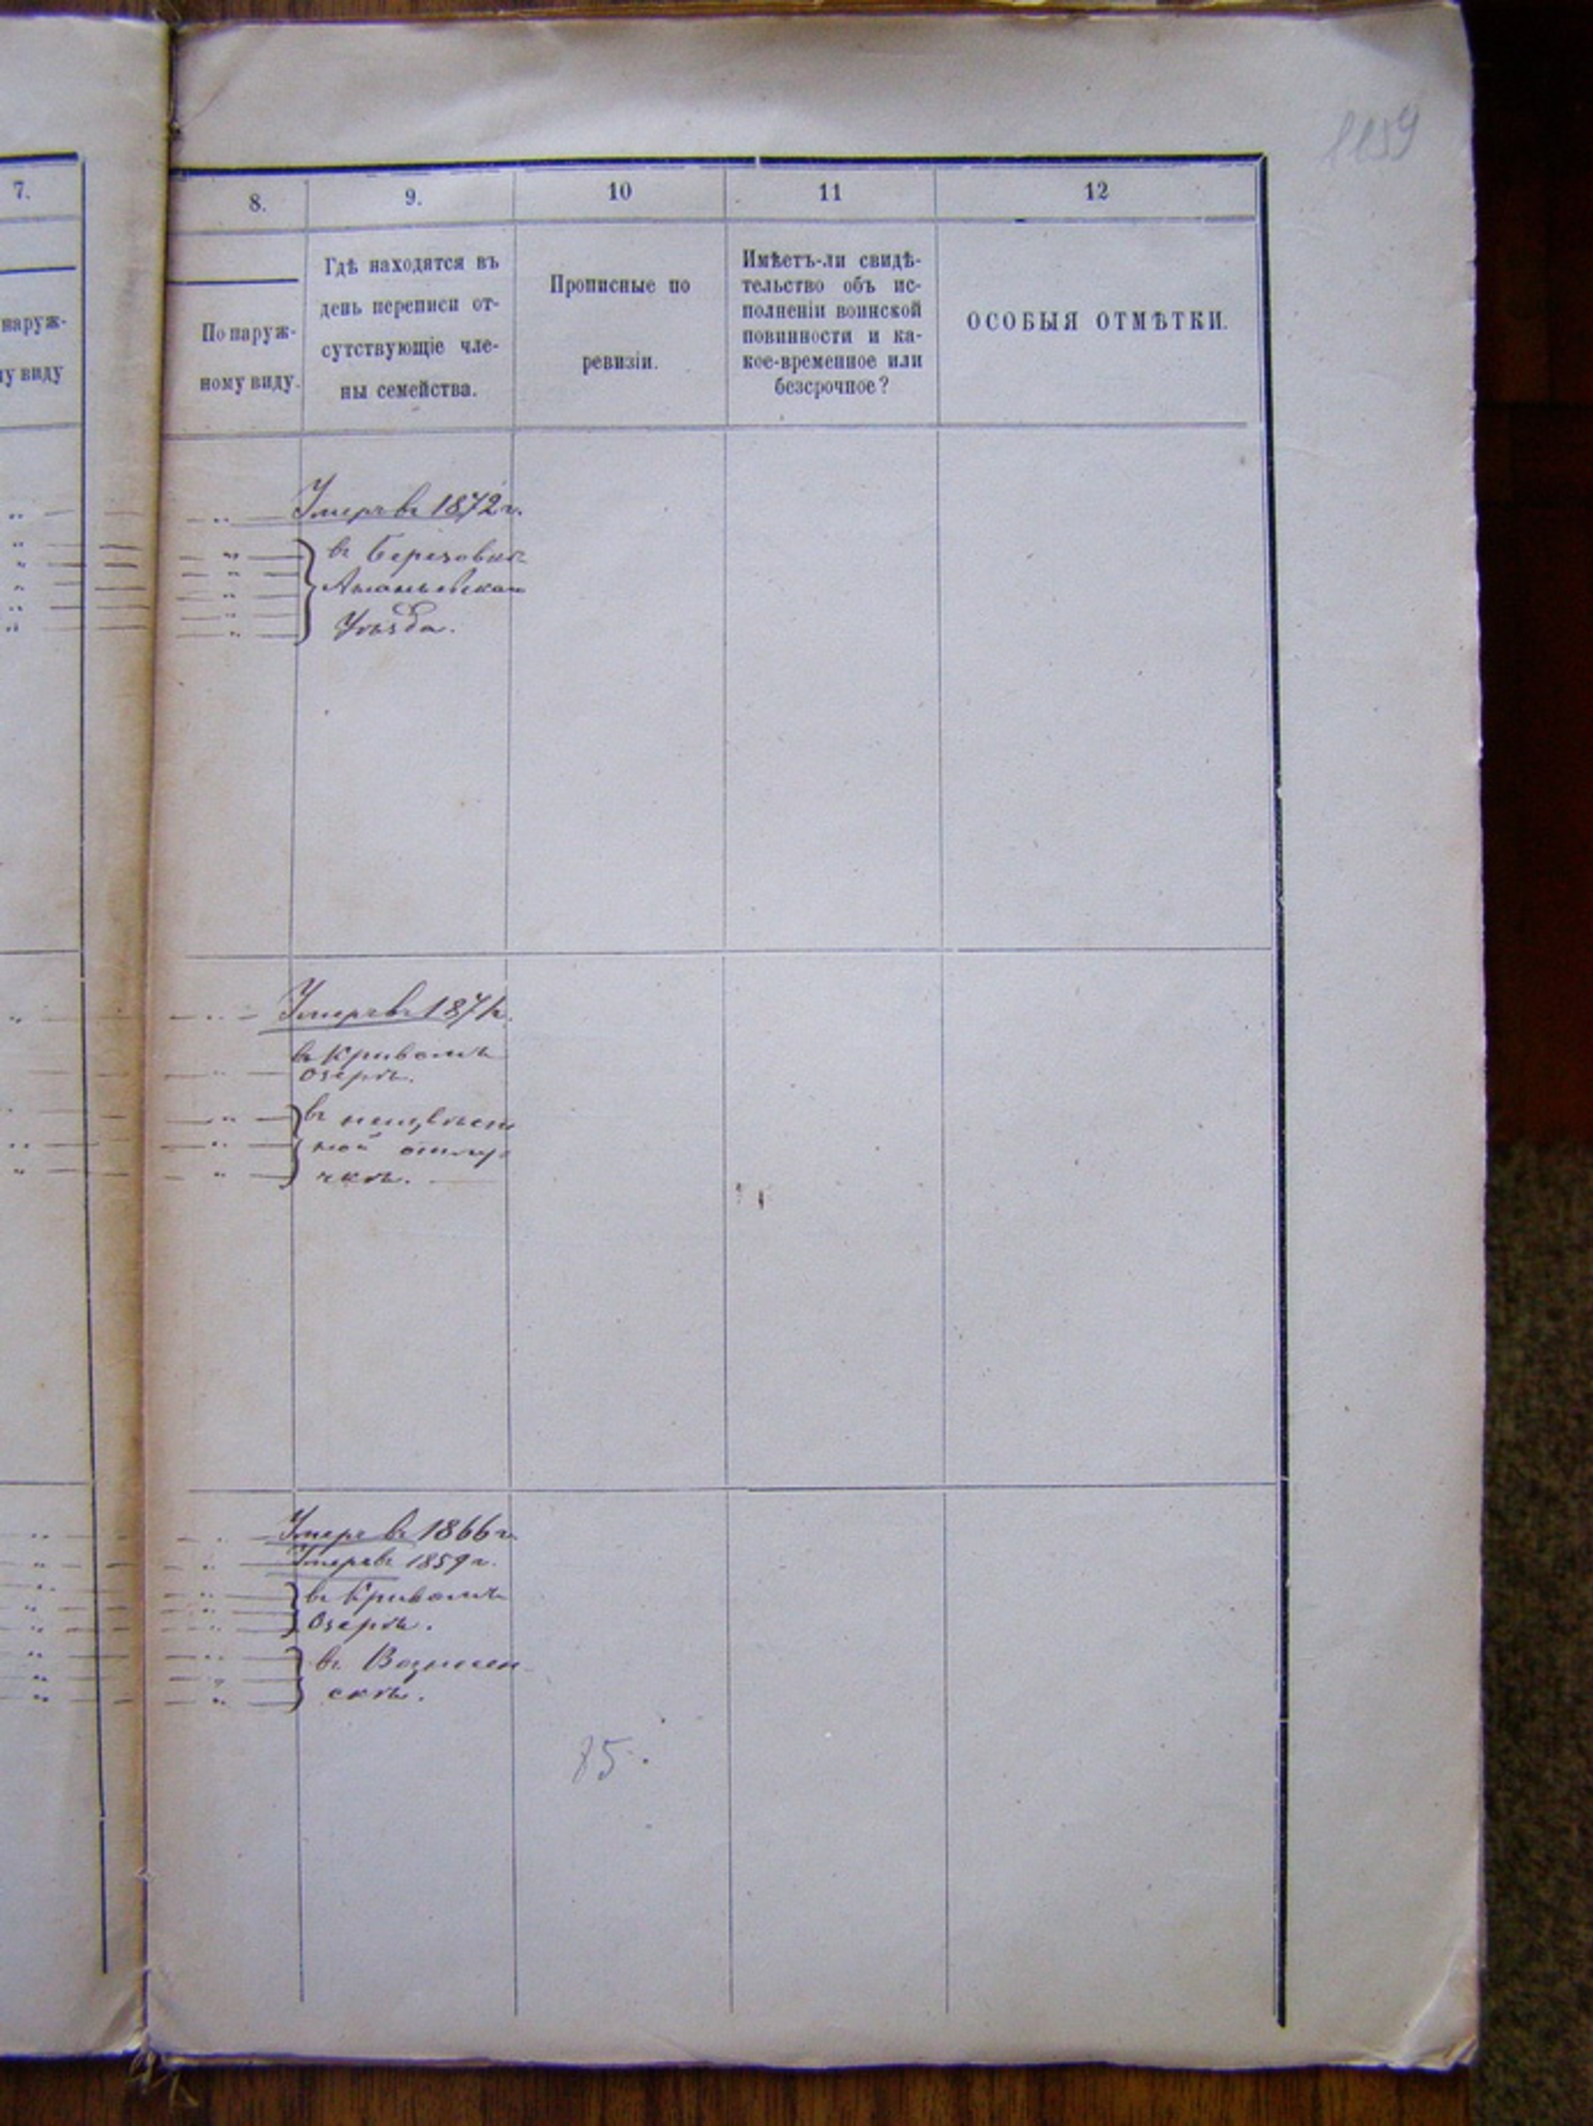 7.
8.
9.
10
11
12
наруж-
у виду
По наруж-
ному виду.
Гдѣ находятся въ
день переписи от-
сутствующіе чле-
ны семейства.
Прописные по
ревизіи.
Имѣетъ-ли свидѣ-
тельство объ ис-
полненіи воинской
повинности и ка-
кое-временное или
безсрочное?
ОСОБЫЯ ОТМѢТКИ.
Умеръ въ 1872 г.
въ Березовкѣ
Ананьевскаго
Уѣзда.
Умеръ въ 187
въ Кривомъ
Озерѣ.
въ неизвѣст
ной отлу-
чкѣ.
Умеръ въ 1866 г.
Умеръ въ 1859 г.
въ Кривомъ
Озерѣ.
въ Вознесен-
скѣ.
85.